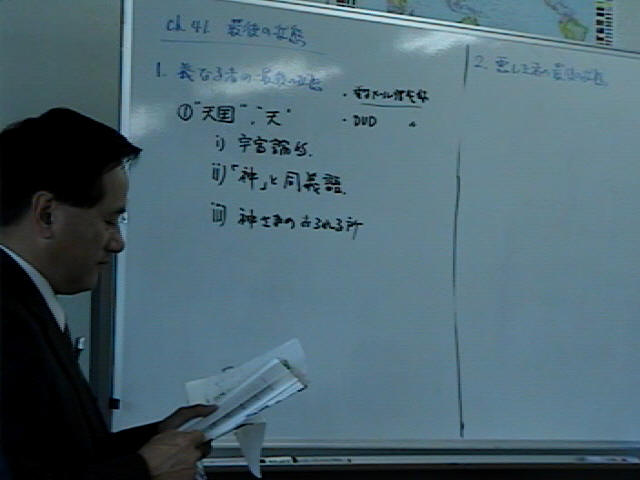 ch. 41 最後の状態
1. 義なる者の最後の状態
①"天国"、"天"
i) 宇宙論的.
ii)「神」と同義語.
iii) 神さまのおられる所
・DVD 〃
2. 悪しき者の最後の状態